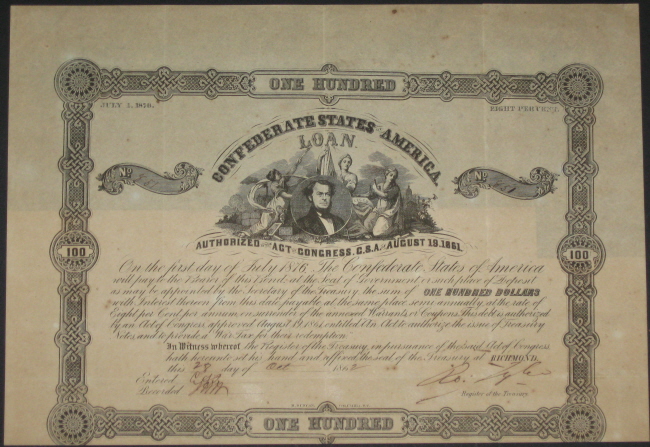 ONE HUNDRED
JULY 1, 1876.
EIGHT PERCENT.
CONFEDERATE STATES AMERICA
LOAN
No
No
AUTHORIZED ACT CONGRESS, C.S.A. AUGUST 19.1861.
100
100
On the first day of July 1876, The Confederate States of America
will pay to the Bearer of this Bond, at the Seat of Government or such place of Deposit
as may be appointed by the Secretary of the Treasury, the sum of ONE HUNDRED DOLLARS
with Interest thereon from this date, payable at the same place semi-annually, at the rate of
Eight per Cent per annum, on surrender of the annexed Warrants or Coupons. This debt is authorized
by an Act of Congress approved August 19, 1861, entitled An Act to authorize the issue of Treasury
Notes, and to provide a War Tax for their redemption.
In Witness whereof the Register of the Treasury, in pursuance of the said Act of Congress
hath hereunto set his hand and affixed the seal of the Treasury at RICHMOND,
this 28 day of Oct 1862
Entered
Recorded
Register of the Treasury
ONE HUNDRED